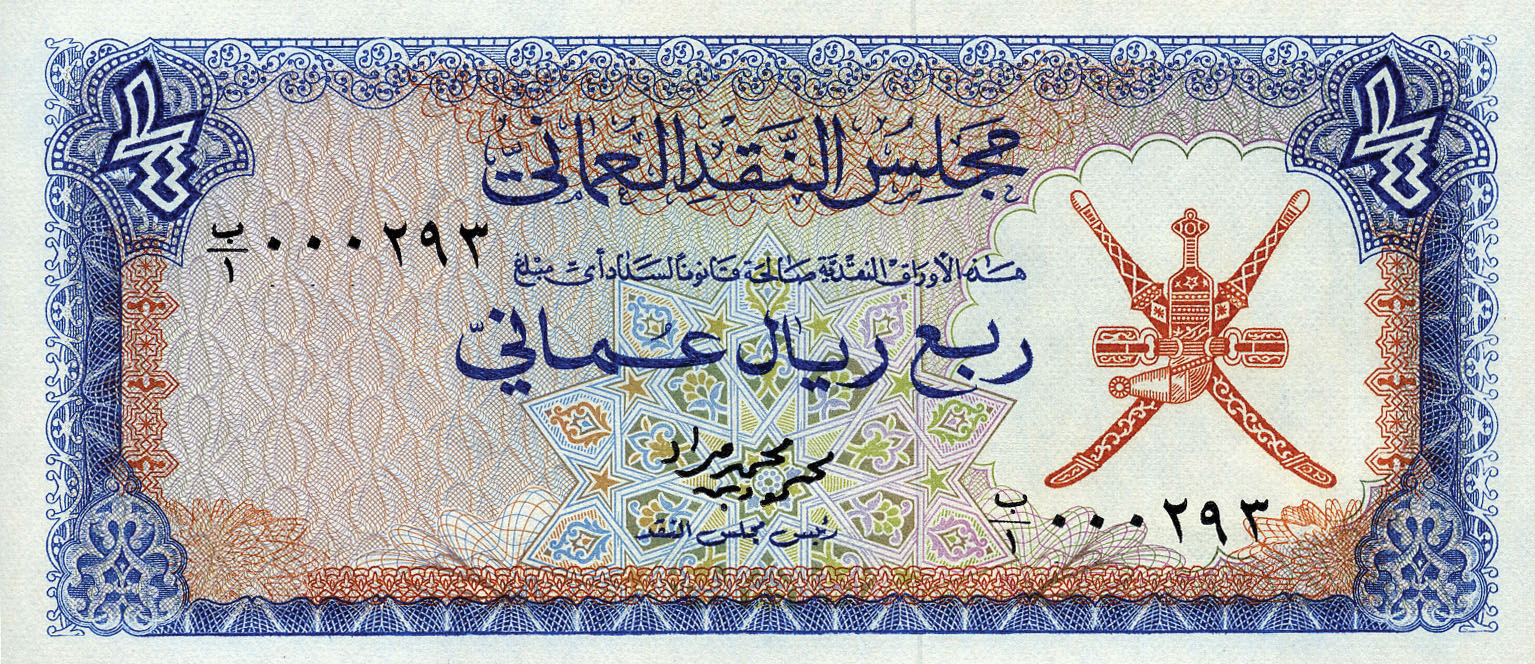 ١/٤
١/٤
مجلس النقد العماني
ب/١ ٠٠٠٢٩٣
هذه الأوراق النقدية صالحة قانوناً لسداد أي مبلغ
ربع ريال عُماني
رئيس مجلس النقد
ب/١ ٠٠٠٢٩٣